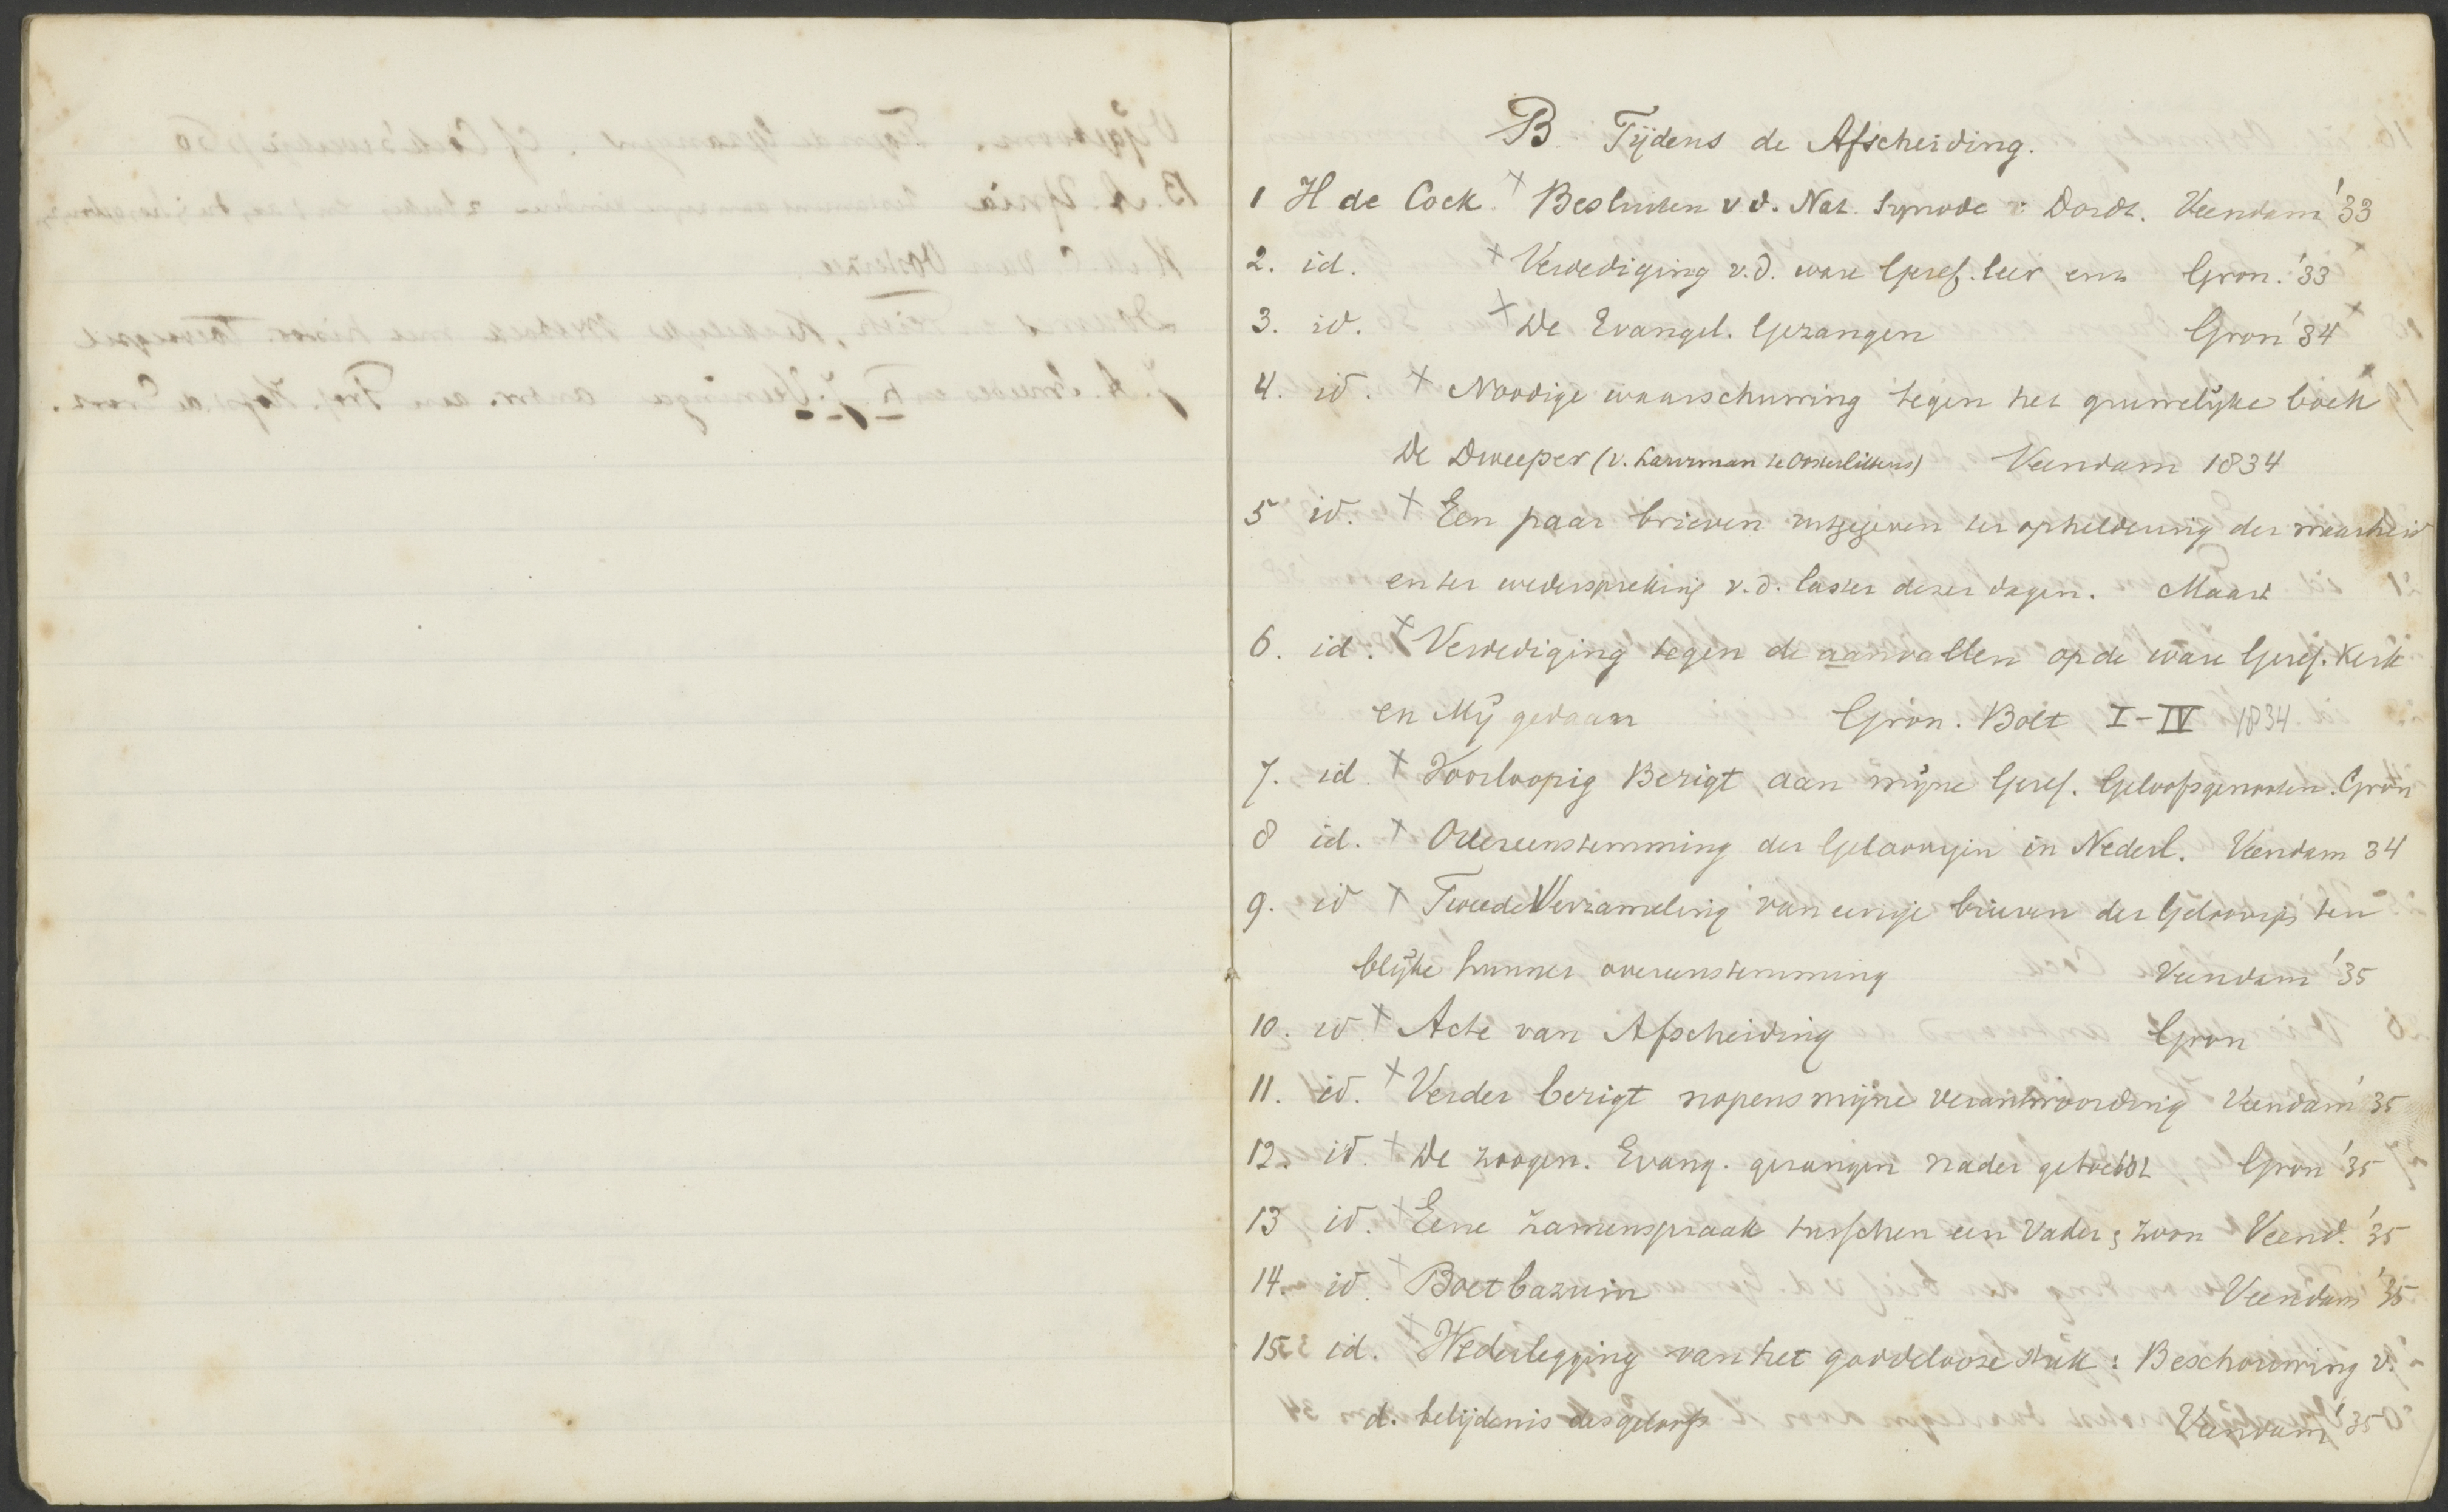 B Tijdens de Afscheiding.
1 H de Cock. + Besluiten v d. Nat. Synode : Dordt. Veendam '33
2. id. + Verdediging v.d. ware Geref. leer enz Gron. '33
3. id. + De Evangel. Gezangen Gron '34 +
4. id. + Noodige waarschuwing tegen het gruwelijke boek
De Dweeper (v. te Oosterlittens) Veendam 1834
5 id. + Een paar brieven uitgegeven ter opheldering der waarheid
en ter wederspreking v.d. laster dezer dagen. Maart
6. id. + Verdediging tegen de aanvallen op de ware Geref. Kerk
en Mij gedaan Gron. Bolt I-IV 1834
7. id. + Voorloopig Berigt aan mijne Geref. Geloofsgenooten. Gron
8 id. + Overeenstemming der Geloovigen in Nederl. Veendam 34
9. id + Tweede Verzameling van eenige brieven der Geloovigen ten
blijke hunner overeenstemming Veendam '35
10. id + Acte van Afscheiding Gron
11. id. + Verder berigt nopens mijne verantwoording Veendam '35
12. id. + De zoogen. Evang. gezangen nader getoetst Gron '35
13 id. + Eene zamenspraak tusschen een Vader & zoon Veend. '35
14. id. + Boetbazuin Veendam '35
15 id. + Wederlegging van het goddelooze stuk : Beschouwing v.
d. belijdenis des geloofs Veendam '35